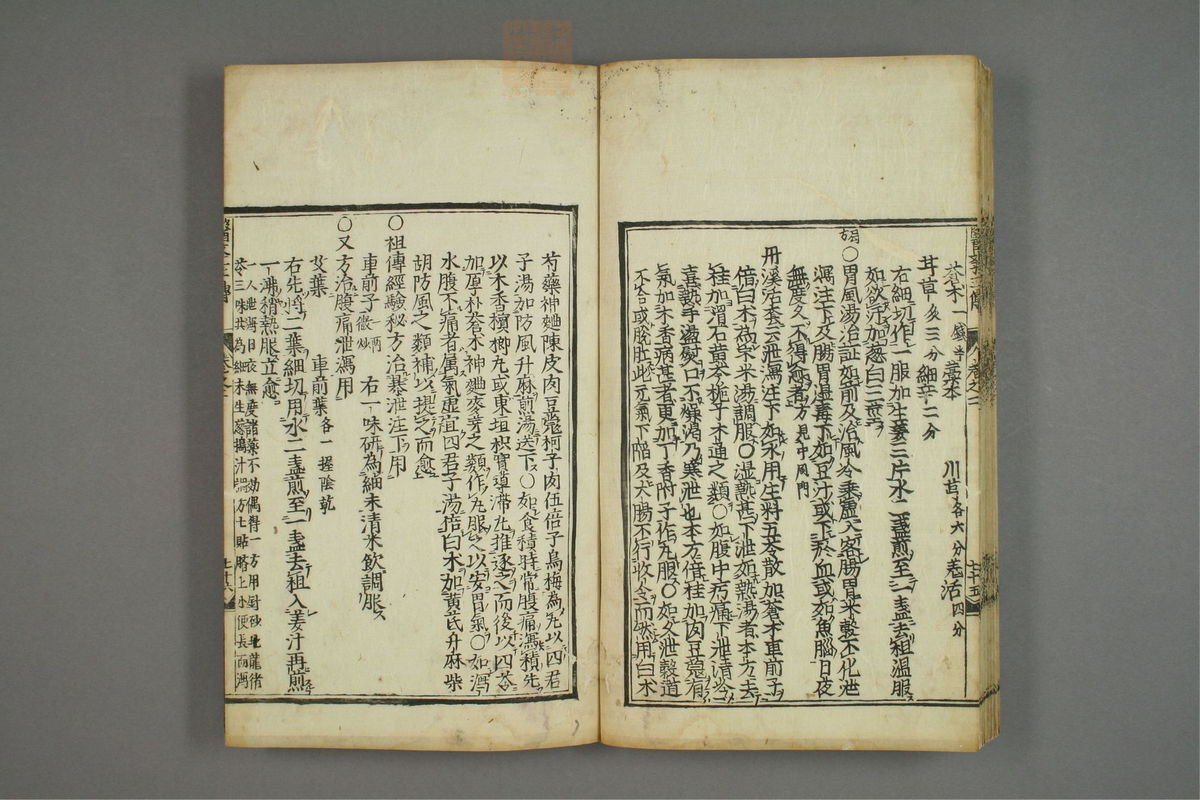 蒼朮一錢半 藁本 川芎各六分 羌活四分
甘草炙三分 細辛二分
右細切作一服加生姜三片水二盞煎至一盞去粗溫服
如欲汗加葱白三莖
○胃風湯治証如前及治風冷乘虛入客腸胃米穀不化泄
瀉注下及腸胃濕毒下如豆汁或下瘀血或如魚腦日夜
無度久不得愈者方見中風門
丹溪活套云泄瀉注下如水用生料五苓散加蒼朮車前子
倍白朮為末米湯調服○濕熱甚下泄如熱湯者本方去
桂加滑石黃芩梔子木通之類○如腹中疼痛下泄清冷
喜熱手盪熨口不燥渴乃寒泄也本方倍桂加肉豆蔻有
氣加木香病甚者更加丁香附子作丸服○如久泄穀道
不合或脫肛此元氣下陷及大腸不行收令而然用白朮
芍藥神麯陳皮肉豆蔻柯子肉伍倍子烏梅為丸以四君
子湯加防風升麻煎湯送下○如食積時常腹痛瀉積先
以木香檳榔丸或東垣枳實導滯丸推逐之而後以四苓
加厚朴蒼朮神麯麥芽之類作丸服之以安胃氣○如瀉
水腹不痛者属氣虛宜四君子湯倍白朮加黃芪升麻柴
胡防風之類補以提之而愈
○祖傳經驗秘方治暴泄注下用
車前子一兩微炒 右一味研為細末清米飲調服
○又方治腹痛泄瀉用
艾葉 車前葉各一握陰乾
右先將二葉細切用水二盞煎至一盞去粗入姜汁再煎
一沸稍熱服立愈
一人泄瀉日夜無度諸藥不効偶得一方用針砂地龍猪
苓三味共為細末生葱搗汁 方七貼臍上小便長而瀉